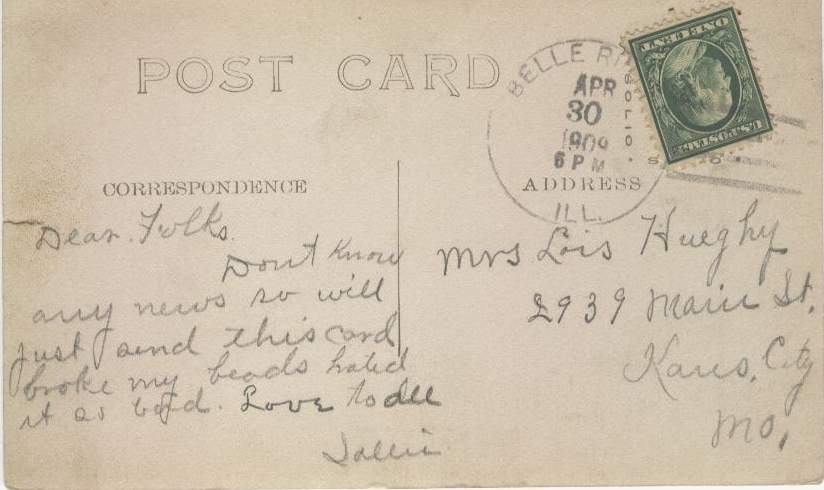 POST CARD
BELLE RI
APR
30
1909
6 PM
ILL.
SOLIO
ONE CENT
U.S. POSTAGE
CORRESPONDENCE
ADDRESS
Dear. Folks.
Dont Know
any news so will
just send this card
broke my beads hated
it so bad. Love to all
Mrs Lois Hueghy
2939 Main St.
Kans, City
Mo,